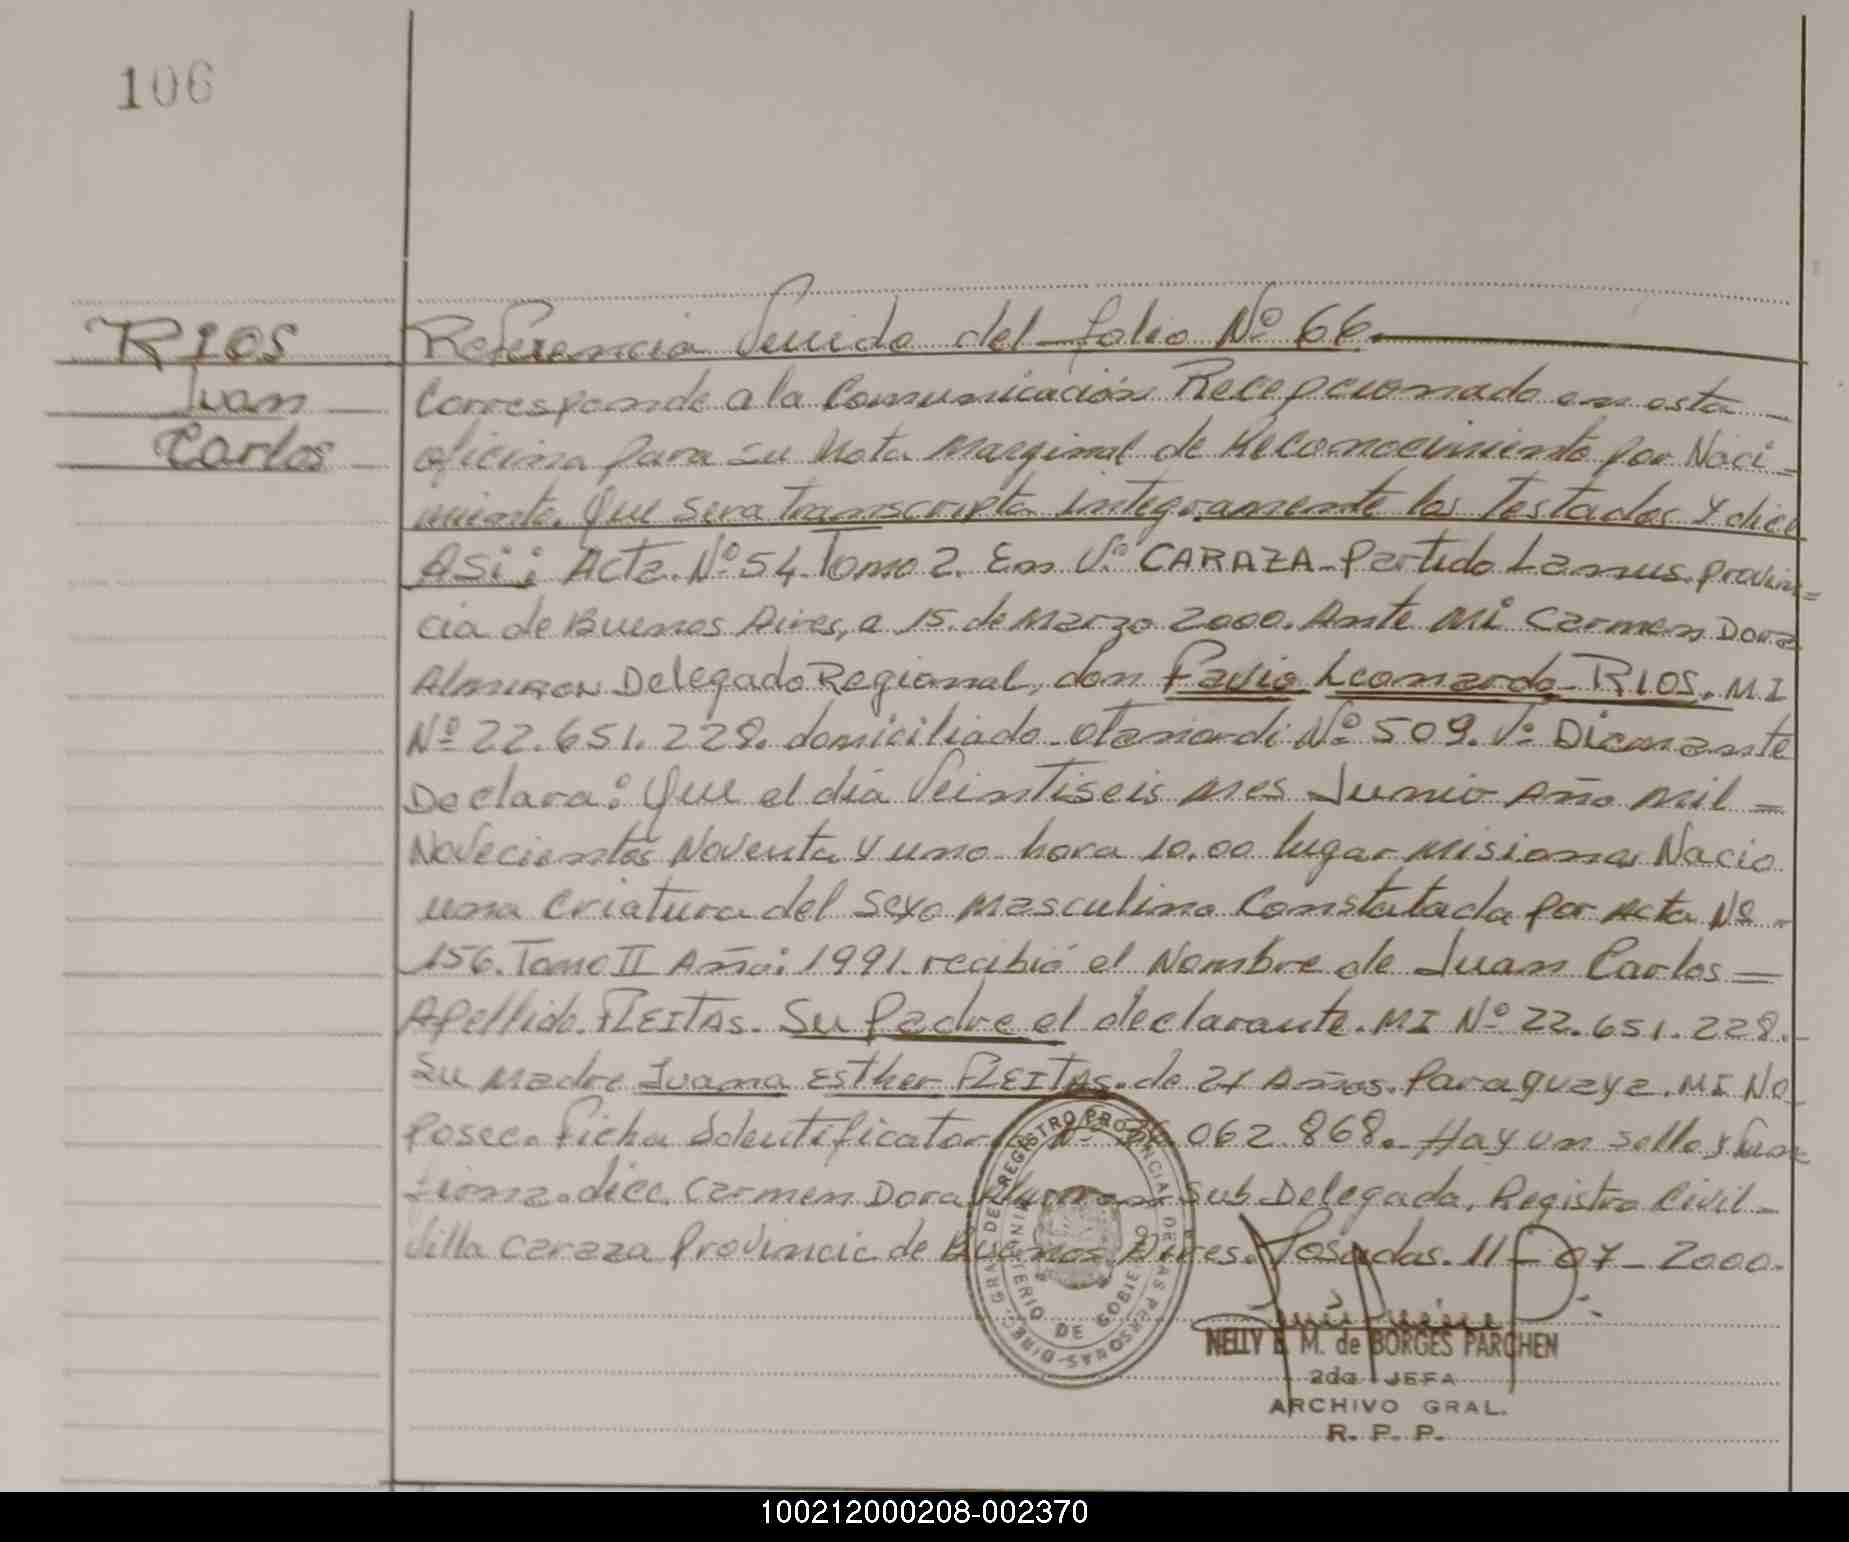 106
RIOS
Juan
Carlos
Referencia Venida del folio Nº 66.
Corresponde a la Comunicación Recepcionada en esta
oficina para su Nota Marginal de Reconocimiento por Naci-
miento. Que sera transcripta integramente los testados y dice
ASi: Acta. Nº 54. Tomo 2. En Vª CARAZA - Partido Lanus. provin=
cia de Buenos Aires, a 15. de Marzo 2000. Ante Mi Carmen Dora
Almiron Delegado Regional, don Favio Leonardo RIOS. MI
Nº 22.651.228. domiciliado Nº 509. Vª Diamante
Declara: Que el día Veintiseis mes Junio Año Mil =
Novecientos Noventa y uno hora 10.00 lugar Misiones Nacio
una Criatura del Sexo Masculino Constatada por Acta Nº
156. Tomo II Año: 1991. recibió el Nombre de Juan Carlos =
Apellido. FLEITAS. Su Padre el declarante. MI Nº 22.651.228.
Su Madre Juana Esther FLEITAS. de 21 Años. Paraguaya. MI No
Posee. Ficha Identificatoria Nº 062.868. Hay un sello y firma
dice. Carmen Dora Almiron Sub Delegada, Registro Civil
Villa Caraza Provincia de Buenos Aires. Posadas. 11-07-2000.
DIREC. GRAL. DE REGISTRO PROVINCIAL DE LAS PERSONAS
MINISTERIO DE GOBIERNO
NELLY E. M. de BORGES PARCHEN
2da JEFA
ARCHIVO GRAL.
R. P. P.
100212000208-002370